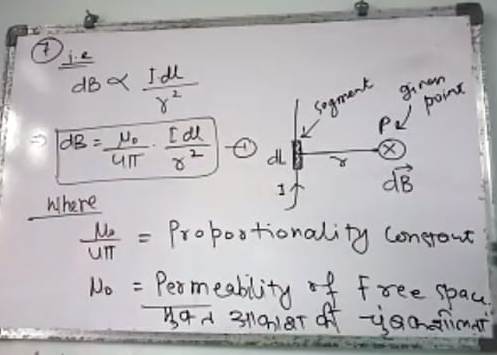 7
i.e
dB ∝ Idl / r²
⇒ dB = μ₀/4π · Idl/r² —①
segment
given point
P
dl
r
I
dB⃗
Where
μ₀/4π = Proportionality Constant
μ₀ = Permeability of Free space
मुक्त आकाश की चुंबकशीलता